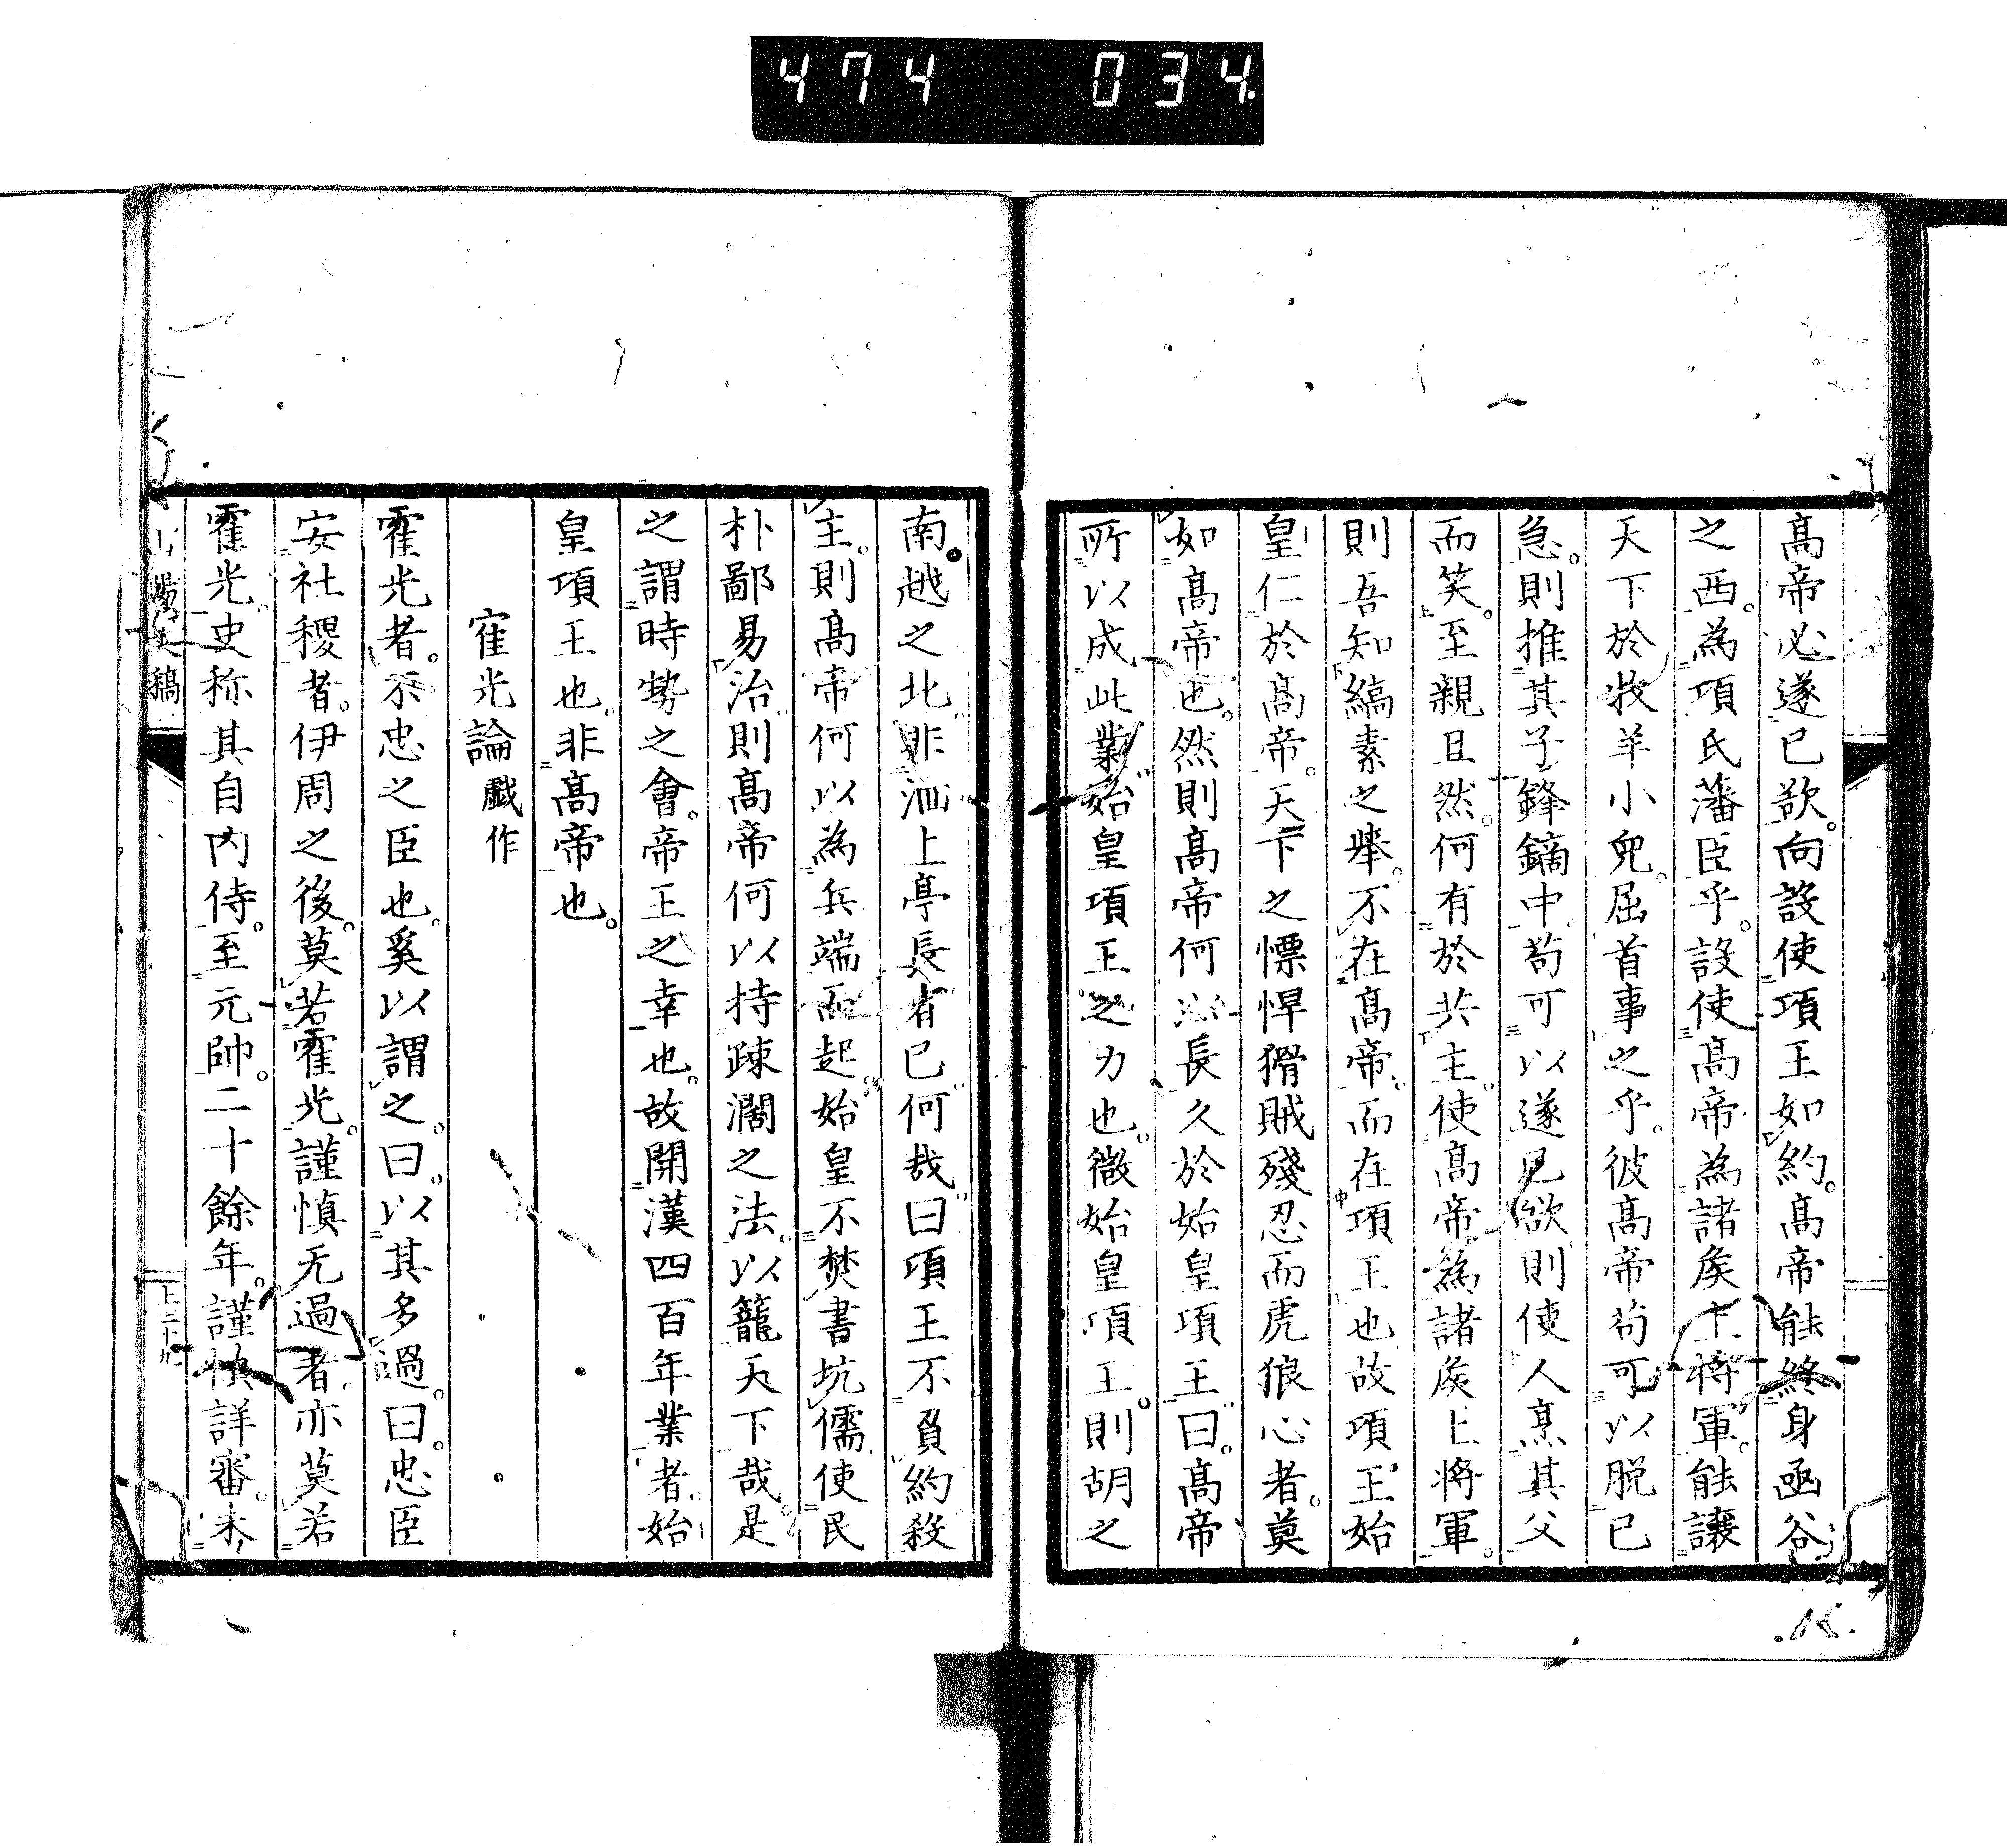 474 034.
高帝必遂已欲向設使項王如約高帝能終身函谷
之西為項氏藩臣乎設使高帝為諸矦上將軍能讓
天下於牧羊小兒屈首事之乎彼高帝苟可以脱已
急則推其子鋒鏑中苟可以遂己欲則使人烹其父
而笑至親且然何有於共主使高帝為諸矦上将軍
則吾知縞素之舉不在高帝而在項王也故項王始
皇仁於高帝天下之慓悍猾賊殘忍而虎狼心者莫
如高帝也然則高帝何以長久於始皇項王曰高帝
所以成此業始皇項王之力也微始皇項王則胡之
南越之北非泗上亭長有已何哉曰項王不負約殺
主則高帝何以為兵端而起始皇不焚書坑儒使民
朴鄙易治則高帝何以持疎濶之法以籠天下哉是
之謂時勢之會帝王之幸也故開漢四百年業者始
皇項王也非高帝也
霍光論戲作
霍光者不忠之臣也奚以謂之曰以其多過曰忠臣
安社稷者伊周之後莫若霍光謹慎无過者亦莫若
霍光史称其自内侍至元帥二十餘年謹慎詳審未
山陽文稿
上二十九